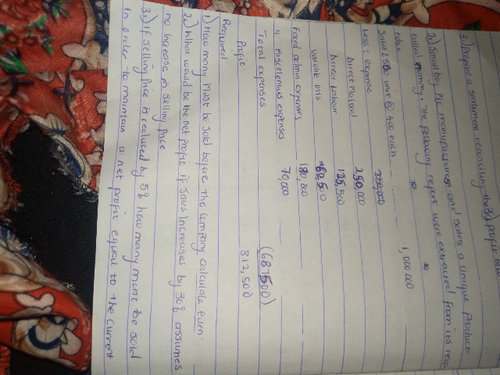 3. Prepare a statement reconciling the profit
2) Smoothy Plc manufactures and sales a unique product
called mummy. The following report were extracted from its
Sales
Sales 2500 unit @ 400 each 1,000,000
Less: expense
Direct Material 250,000
Direct Labour 125,500
Variable 62,500
Fixed admin expenses 180,000
" miscellenious expenses 70,000
Total expenses (687500)
Profit 312,500
Required
1) How many must be sold before the company calculate even
2) What would be the net profit if sales increases by 30% assumes
no increase in selling price
3.) If selling price is reduced by 5% how many must be sold
in order to maintain a net profit equal to the current